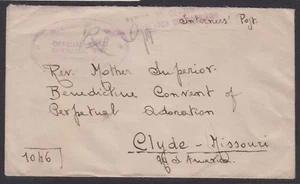 Internees' Post.
OFFICIAL
Rev. Mother Superior.
Benedictine Convent of
Perpetual Adoration
Clyde - Missouri
U.S. America.
1046